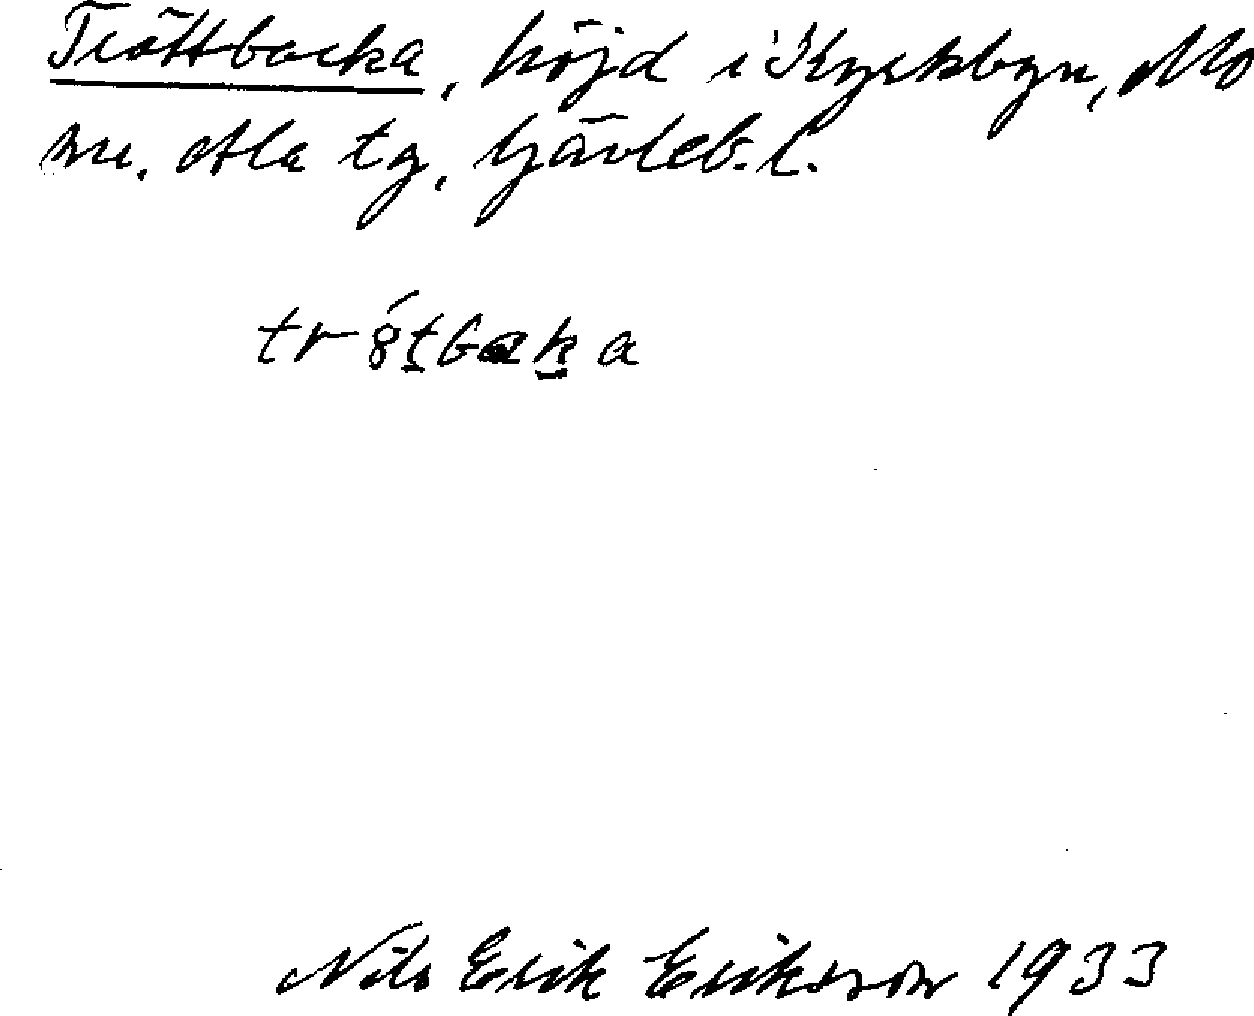 Tröttbacka, höjd i Kyrkbyn, Mo
sn. Ala tg, Gävleb. l.
tr8́tbaka
Nils Erik Eriksson 1933